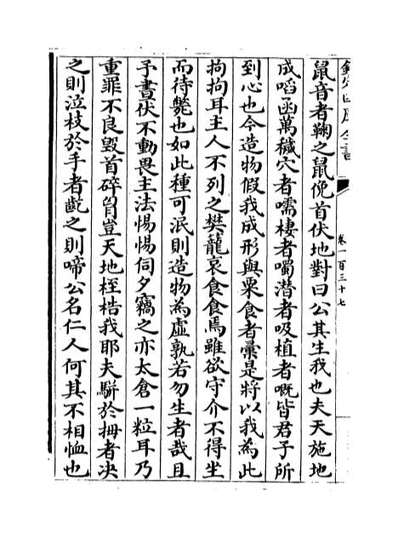 欽定四庫全書
卷一百三十七
鼠音者鞠之鼠俛首伏地對曰公其生我也夫天施地
成㗖函萬穢穴者嚅棲者噣潛者吸植者嘅皆君子所
到心也今造物假我成形與粟食者彙是將以我為此
拘拘耳主人不列之樊籠哀食食焉雖欲守介不得坐
而待斃也如此種可泯則造物為虛孰若勿生者哉且
予晝伏不動畏主法惕惕伺夕竊之亦太倉一粒耳乃
重罪不良毁首碎𦙄豈天地桎梏我耶夫駢於拇者决
之則泣枝於手者齕之則啼公名仁人何其不相恤也